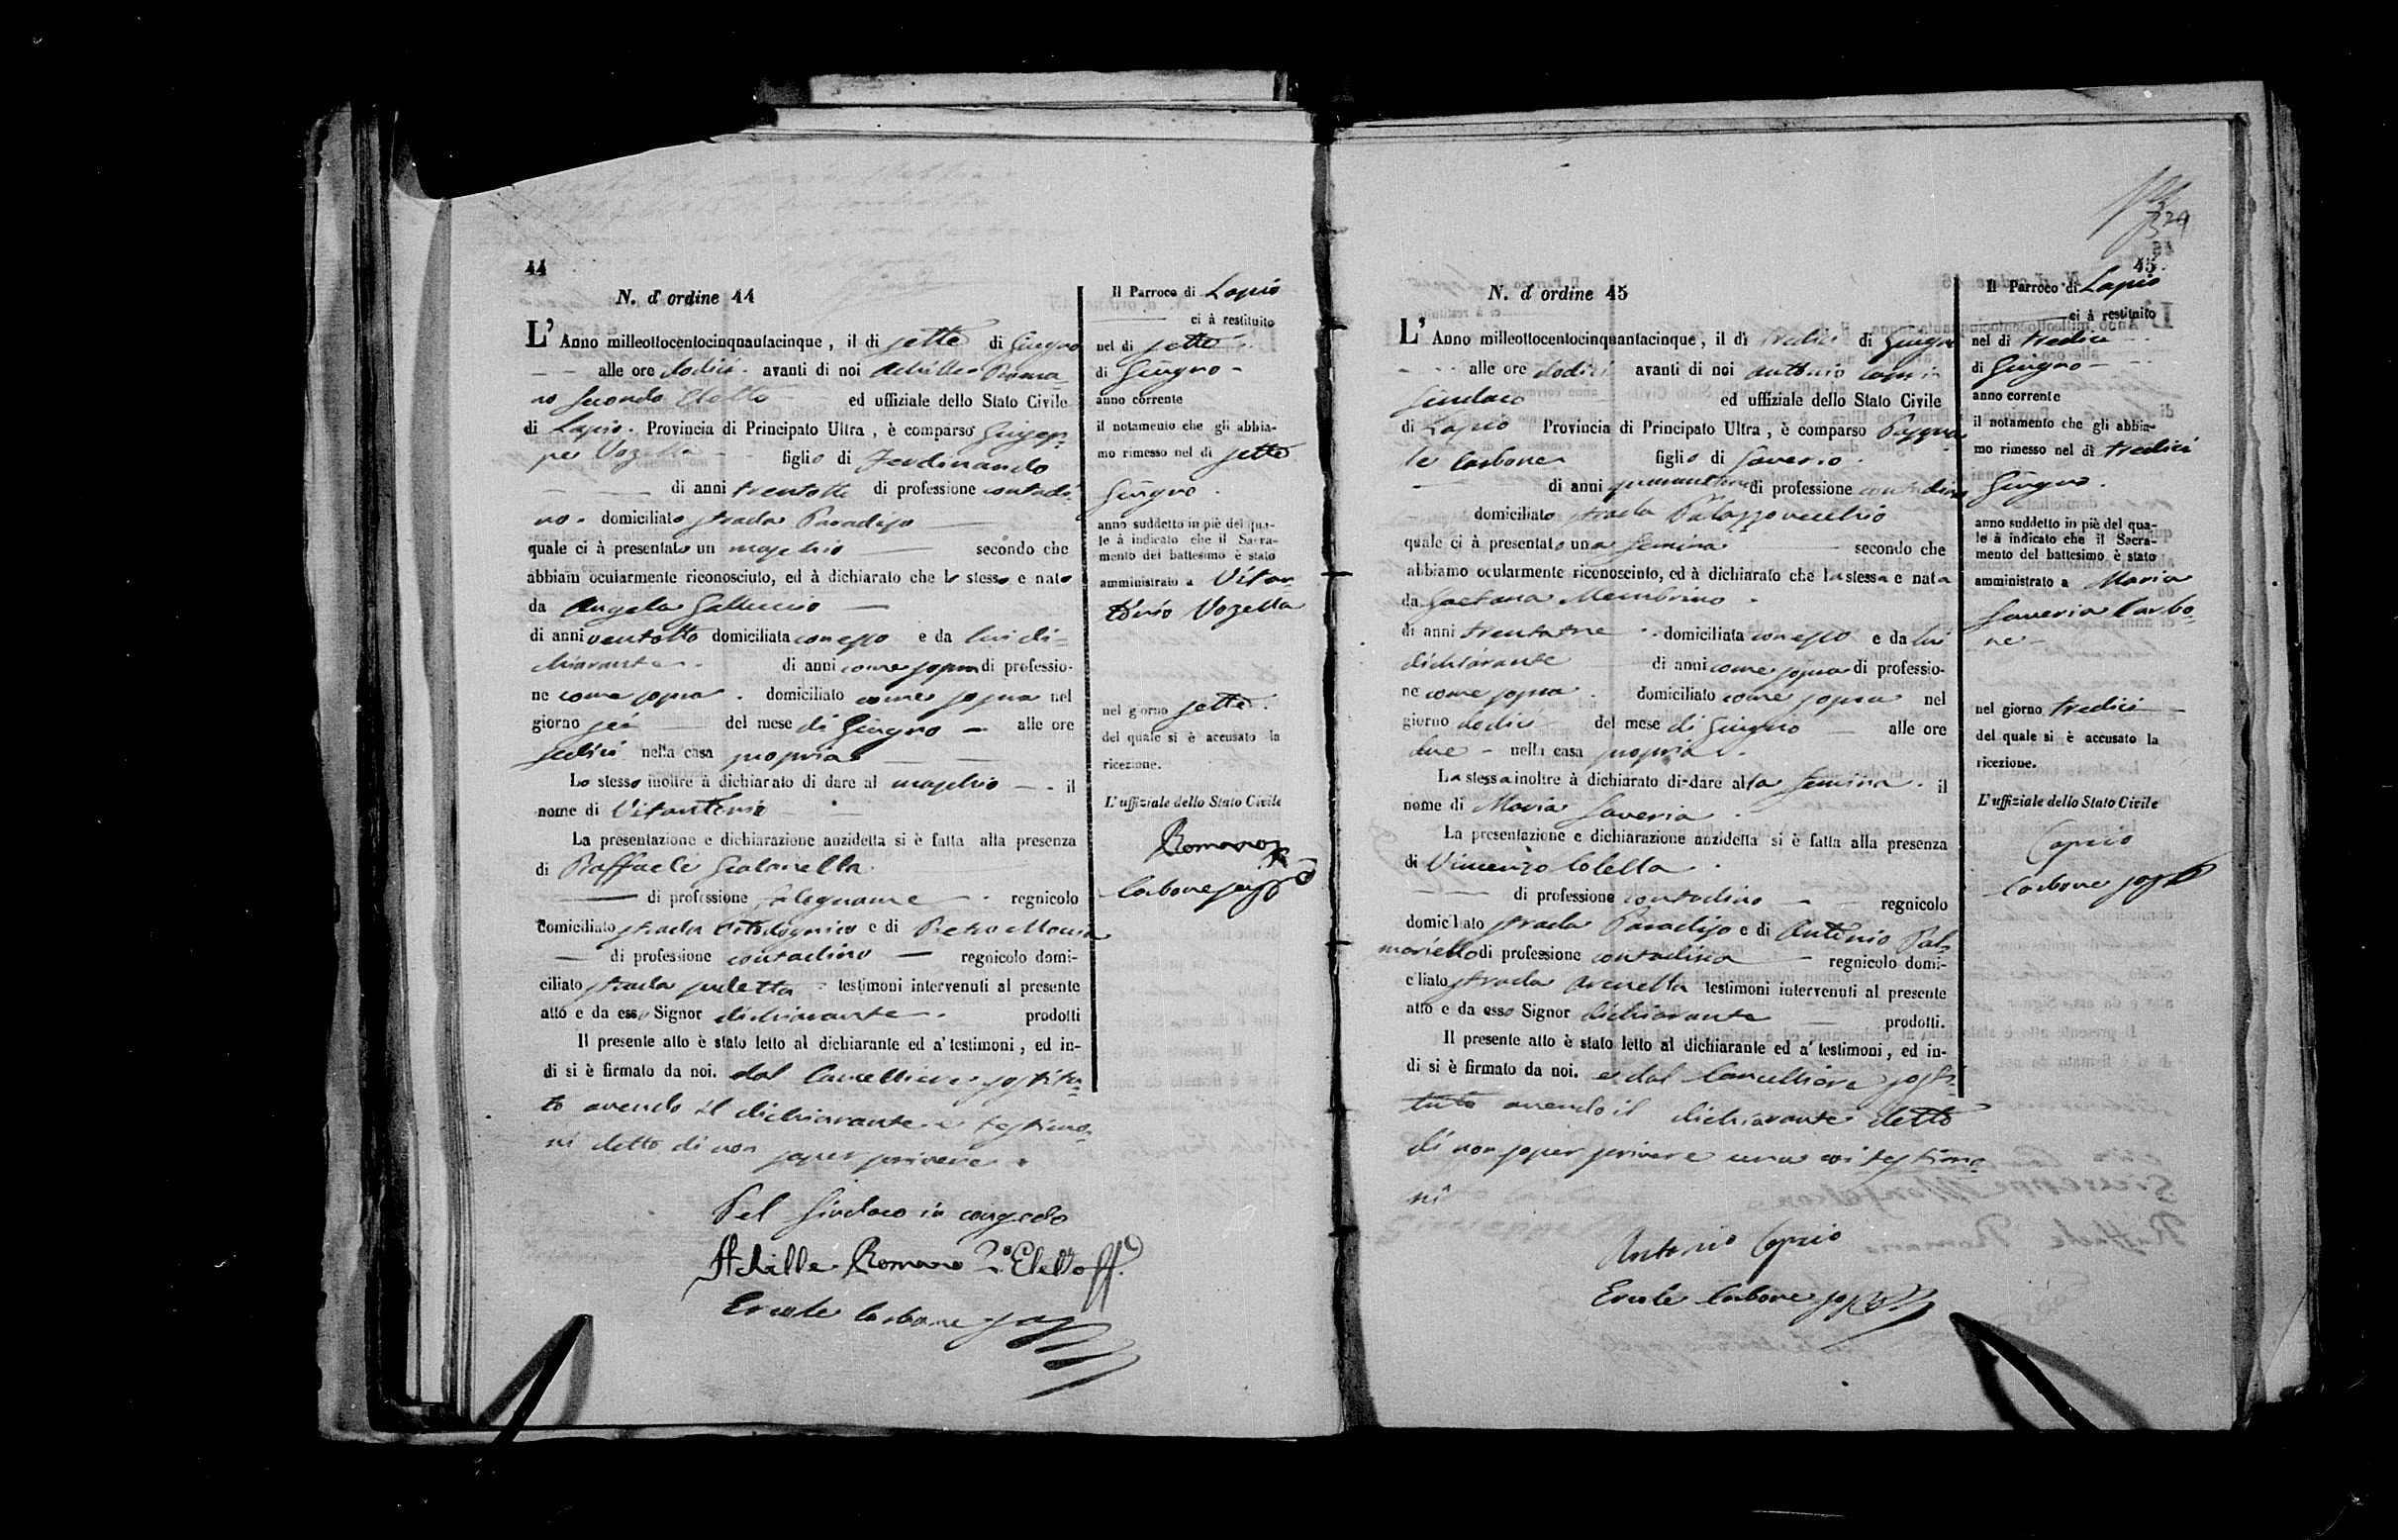 44
N. d' ordine 44
L' Anno milleottocentocinquantacinque, il dì sette di Giugno
alle ore dodici avanti di noi Achille Roma
no Secondo Eletto ed uffiziale dello Stato Civile
di Lapio. Provincia di Principato Ultra, è comparso Giusep
pe Vozella figlio di Ferdinando
di anni trentotto di professione contadi
no. domiciliato strada Paradiso
quale ci à presentato un maschio secondo che
abbiam ocularmente riconosciuto, ed à dichiarato che lo stesso e nato
da Angela Galluccio
di anni ventotto domiciliata con esso e da lui di=
chiarante di anni come sopra di professio-
ne come sopra. domiciliato come sopra nel
giorno sei del mese di Giugno alle ore
sedici nella casa propria
Lo stesso inoltre à dichiarato di dare al maschio il
nome di Vitantonio
La presentazione e dichiarazione anzidetta si è fatta alla presenza
di Raffaele
di professione falegname regnicolo
domiciliato strada e di Pietro
di professione contadino regnicolo domi-
ciliato strada testimoni intervenuti al presente
atto e da esso Signor dichiarante prodotti
Il presente atto è stato letto al dichiarante ed a' testimoni, ed in-
di si è firmato da noi. dal Cancelliere sostitu
to avendo il dichiarante e testimo
ni detto di non saper scrivere
Pel Sindaco in congedo
Achille Romano 2.° Eletto ff.
Ercole Carbone sos
Il Parroco di Lapio
ci à restituito
nel dì sette
di Giugno
anno corrente
il notamento che gli abbia-
mo rimesso nel dì sette
Giugno.
anno suddetto in piè del qua-
le à indicato che il Sacra-
mento del battesimo è stato
amministrato a Vitan
tonio Vozella
nel giorno sette.
del quale si è accusato la
ricezione.
L'uffiziale dello Stato Civile
Romano
Carbone sos
45.
N. d' ordine 45
L' Anno milleottocentocinquantacinque, il dì tredici di Giugno
alle ore dodici avanti di noi Antonio Caprio
Sindaco ed uffiziale dello Stato Civile
di Lapio Provincia di Principato Ultra, è comparso Pasqua
le Carbone figlio di Saverio
di anni di professione contadino
domiciliato strada Palazzo vecchio
quale ci à presentato una femina secondo che
abbiamo ocularmente riconosciuto, ed à dichiarato che la stessa e nata
da Gaetana Membrino
di anni trentatre domiciliata con esso e da lui
dichiarante di anni come sopra di professio-
ne come sopra. domiciliato come sopra nel
giorno dodici del mese di Giugno alle ore
due nella casa propria.
La stessa inoltre à dichiarato di dare alla femina. il
nome di Maria Saveria.
La presentazione e dichiarazione anzidetta si è fatta alla presenza
di Vincenzo Colella
di professione contadino regnicolo
domiciliato strada Paradiso e di Antonio Pal
mariello di professione contadino regnicolo domi-
ciliato strada Arenella testimoni intervenuti al presente
atto e da esso Signor dichiarante prodotti.
Il presente atto è stato letto al dichiarante ed a' testimoni, ed in-
di si è firmato da noi. e dal Cancelliere sosti
tuto avendo il dichiarante detto
di non saper scrivere testimo
ni
Antonio Caprio
Ercole Carbone
Il Parroco di Lapio
ci à restituito
nel dì tredici
di Giugno
anno corrente
il notamento che gli abbia-
mo rimesso nel dì tredici
Giugno.
anno suddetto in piè del qua-
le à indicato che il Sacra-
mento del battesimo è stato
amministrato a Maria
Saveria Carbo
ne
nel giorno tredici
del quale si è accusato la
ricezione.
L'uffiziale dello Stato Civile
Caprio
Carbone